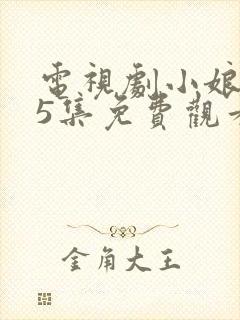 電視劇小娘
5集免費觀
金角大王